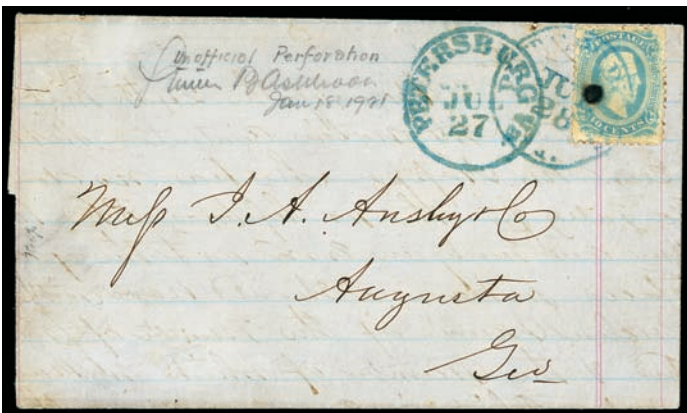 Unofficial Perforation
Ashbrook
Jan 18 1921
PETERSBURG
VA.
JUL
27
JU
28
POSTAGE
10 CENTS
Mess J. A. Ansley & Co
Augusta
Geo